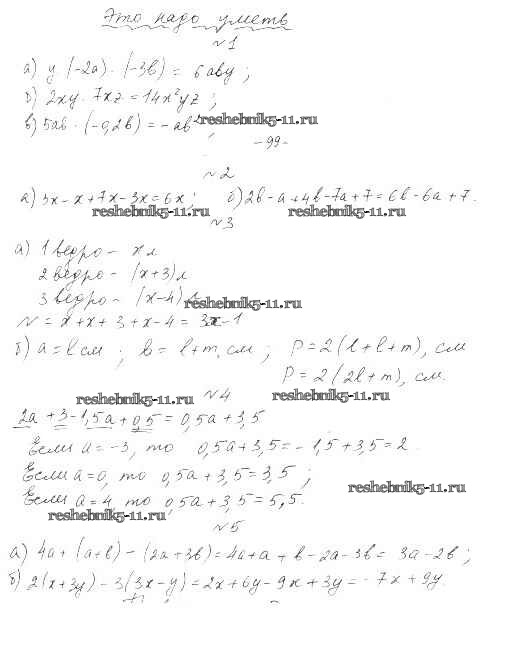 Это надо уметь
№1
а) y (-2a) · (-3b) = 6aby ;
б) 2xy · 7xz = 14x²yz ;
в) 5ab · (-0,2b) = - ab² reshebnik5-11.ru
- 99 -
№2
а) 3x - x + 7x - 3x = 6x ; б) 2b - a + 4b - 7a + 7 = 6b - 6a + 7.
reshebnik5-11.ru reshebnik5-11.ru
№3
а) 1 ведро - x л
2 ведро - (x+3) л
3 ведро - (x-4) reshebnik5-11.ru
N = x + x + 3 + x - 4 = 3x - 1
б) a = l см ; b = l + m, см ; P = 2 (l + l + m), см
P = 2 (2l + m), см.
reshebnik5-11.ru №4 reshebnik5-11.ru
2a + 3 - 1,5a + 0,5 = 0,5a + 3,5
Если a = -3, то 0,5a + 3,5 = - 1,5 + 3,5 = 2.
Если a = 0, то 0,5a + 3,5 = 3,5 ;
reshebnik5-11.ru
Если a = 4, то 0,5a + 3,5 = 5,5.
reshebnik5-11.ru
№5
а) 4a + (a+b) - (2a+3b) = 4a + a + b - 2a - 3b = 3a - 2b ;
б) 2(x+3y) - 3(3x-y) = 2x + 6y - 9x + 3y = - 7x + 9y.